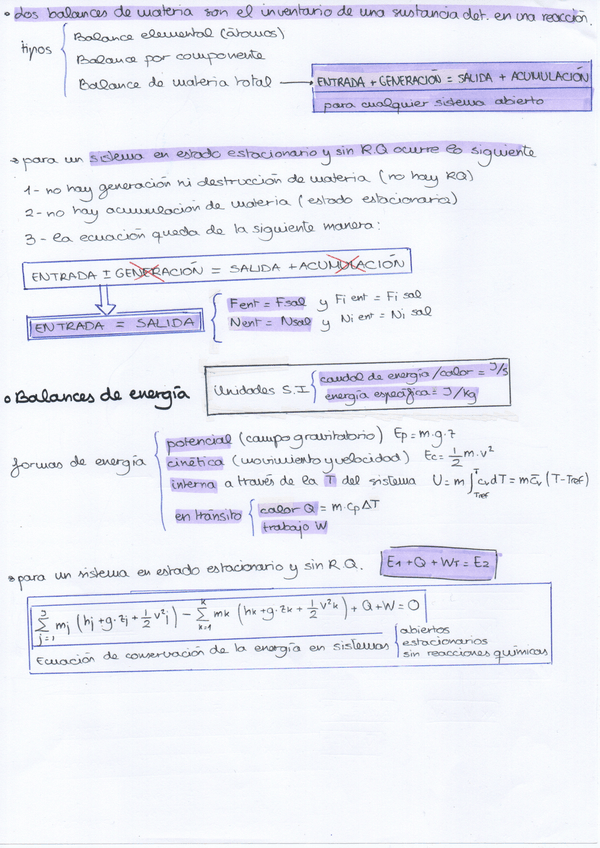 • los balances de materia son el inventario de una sustancia det. en una reacción.
tipos
Balance elemental (átomos)
Balance por componente
Balance de materia total → ENTRADA + GENERACIÓN = SALIDA + ACUMULACIÓN
para cualquier sistema abierto
para un sistema en estado estacionario y sin R.Q ocurre lo siguiente
1- no hay generación ni destrucción de materia (no hay RQ)
2- no hay acumulación de materia (estado estacionario)
3- la ecuación queda de la siguiente manera:
ENTRADA ± GENERACIÓN = SALIDA + ACUMULACIÓN
ENTRADA = SALIDA
Fent = Fsal y Fi ent = Fi sal
Nent = Nsal y Ni ent = Ni sal
• Balances de energía
Unidades S.I
caudal de energía/calor = J/s
energía específica = J/kg
formas de energía
potencial (campo gravitatorio) Ep = m·g·z
cinética (movimiento y velocidad) Ec = 1/2 m·v²
interna a través de la T del sistema U = m ∫_Tref^T cv dT = m c̄v (T-Tref)
en tránsito
calor Q = m·cp ΔT
trabajo W
para un sistema en estado estacionario y sin R.Q. E1 + Q + WT = E2
Σ_{j=1}^{J} mj (hj + g·zj + 1/2 v²j) - Σ_{k=1}^{K} mk (hk + g·zk + 1/2 v²k) + Q + W = 0
Ecuación de conservación de la energía en sistemas
abiertos
estacionarios
sin reacciones químicas